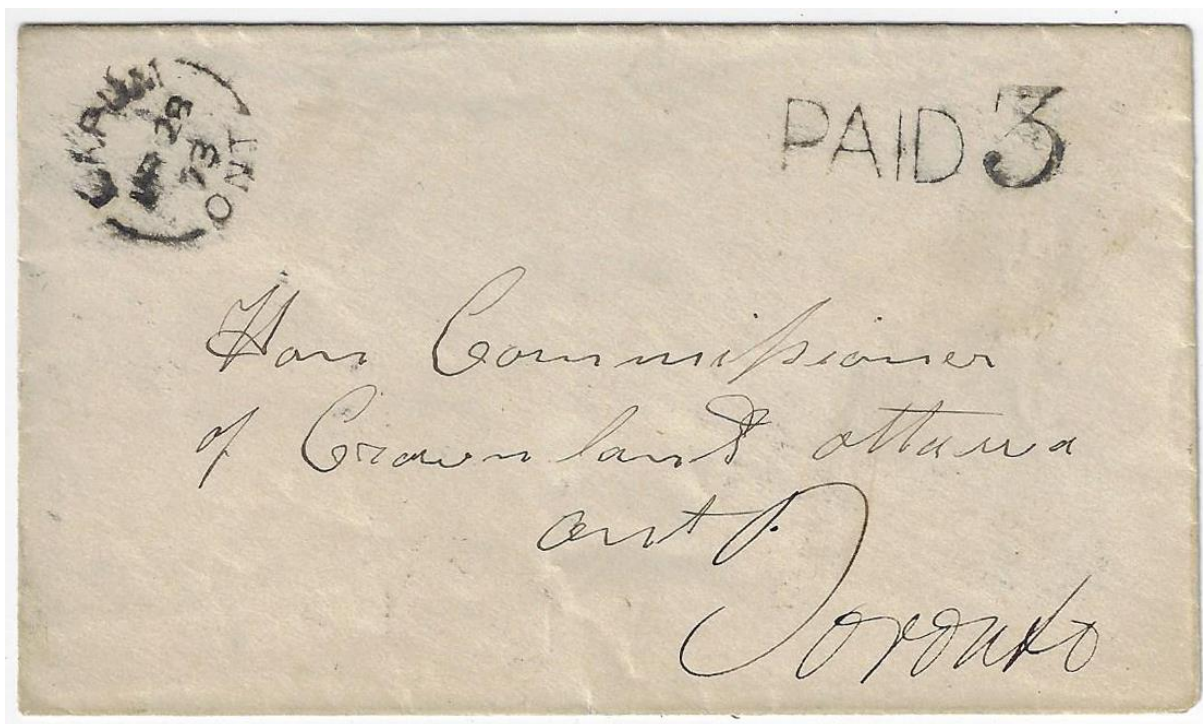 28
73
ONT
PAID 3
Hon Commissioner
of Crown land ottawa
ont P.
Toronto